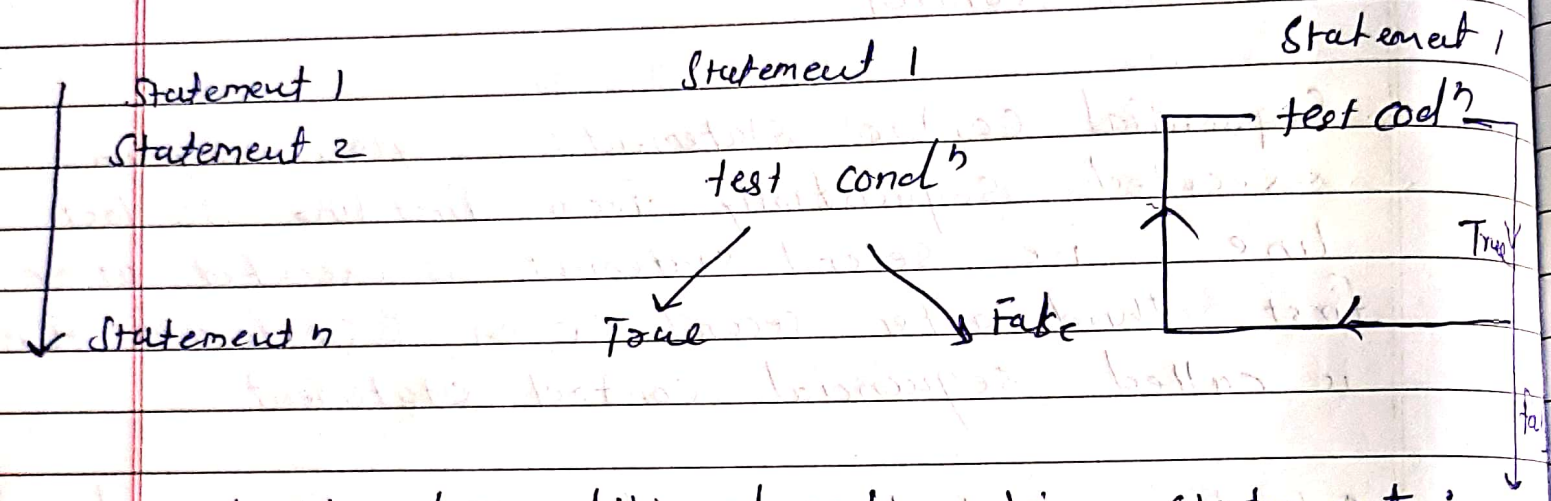 Statement 1
Statement 2
Statement n
Statement 1
test condⁿ
True
False
Statement 1
test codⁿ
True